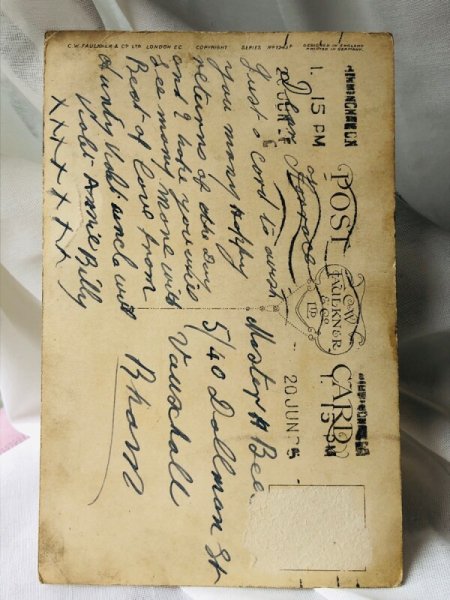 C.W. FAULKNER & CO LTD. LONDON E.C. COPYRIGHT SERIES No
DESIGNED IN ENGLAND
PRINTED IN GERMANY.
POST CARD
C.W.
FAULKNER
& CO.
LTD.
1. 15 PM
20 JUN
Dear Horace
Just a card to wish
you many happy
returns of the day
and I hope you will
see many more with
Best of love from
Aunty
Annie Billy
x x x x x x x
20 JUN
Master H Bee
5/40 Dollman St
Vauxhall
Bham